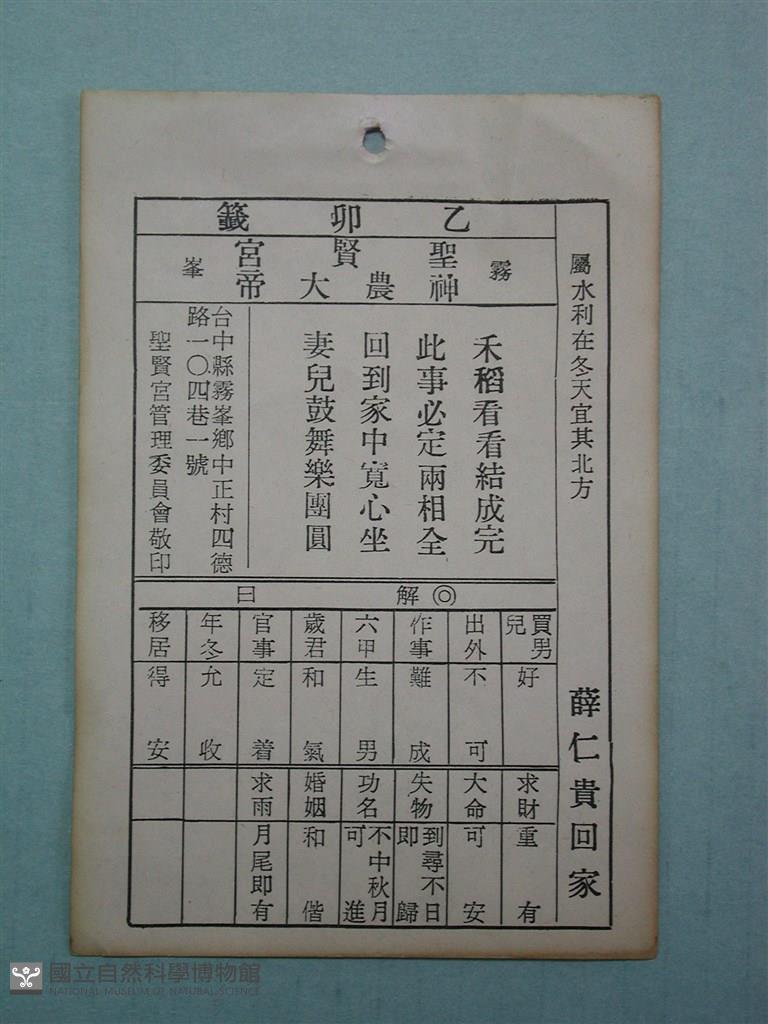 乙卯籤
霧 聖賢宮 峯
神農大帝
屬水利在冬天宜其北方
薛仁貴回家
禾稻看看結成完
此事必定兩相全
回到家中寬心坐
妻兒鼓舞樂團圓
台中縣霧峯鄉中正村四德
路一〇四巷一號
聖賢宮管理委員會敬印
◎解曰
買男兒 好
出外 不可
作事 難成
六甲 生男
歲君 和氣
官事 定着
年冬 允收
移居 得安
求財 重有
大命 可安
失物 到尋不日即歸
功名 不中秋月可進
婚姻 和偕
求雨 月尾即有
國立自然科學博物館
NATIONAL MUSEUM OF NATURAL SCIENCE